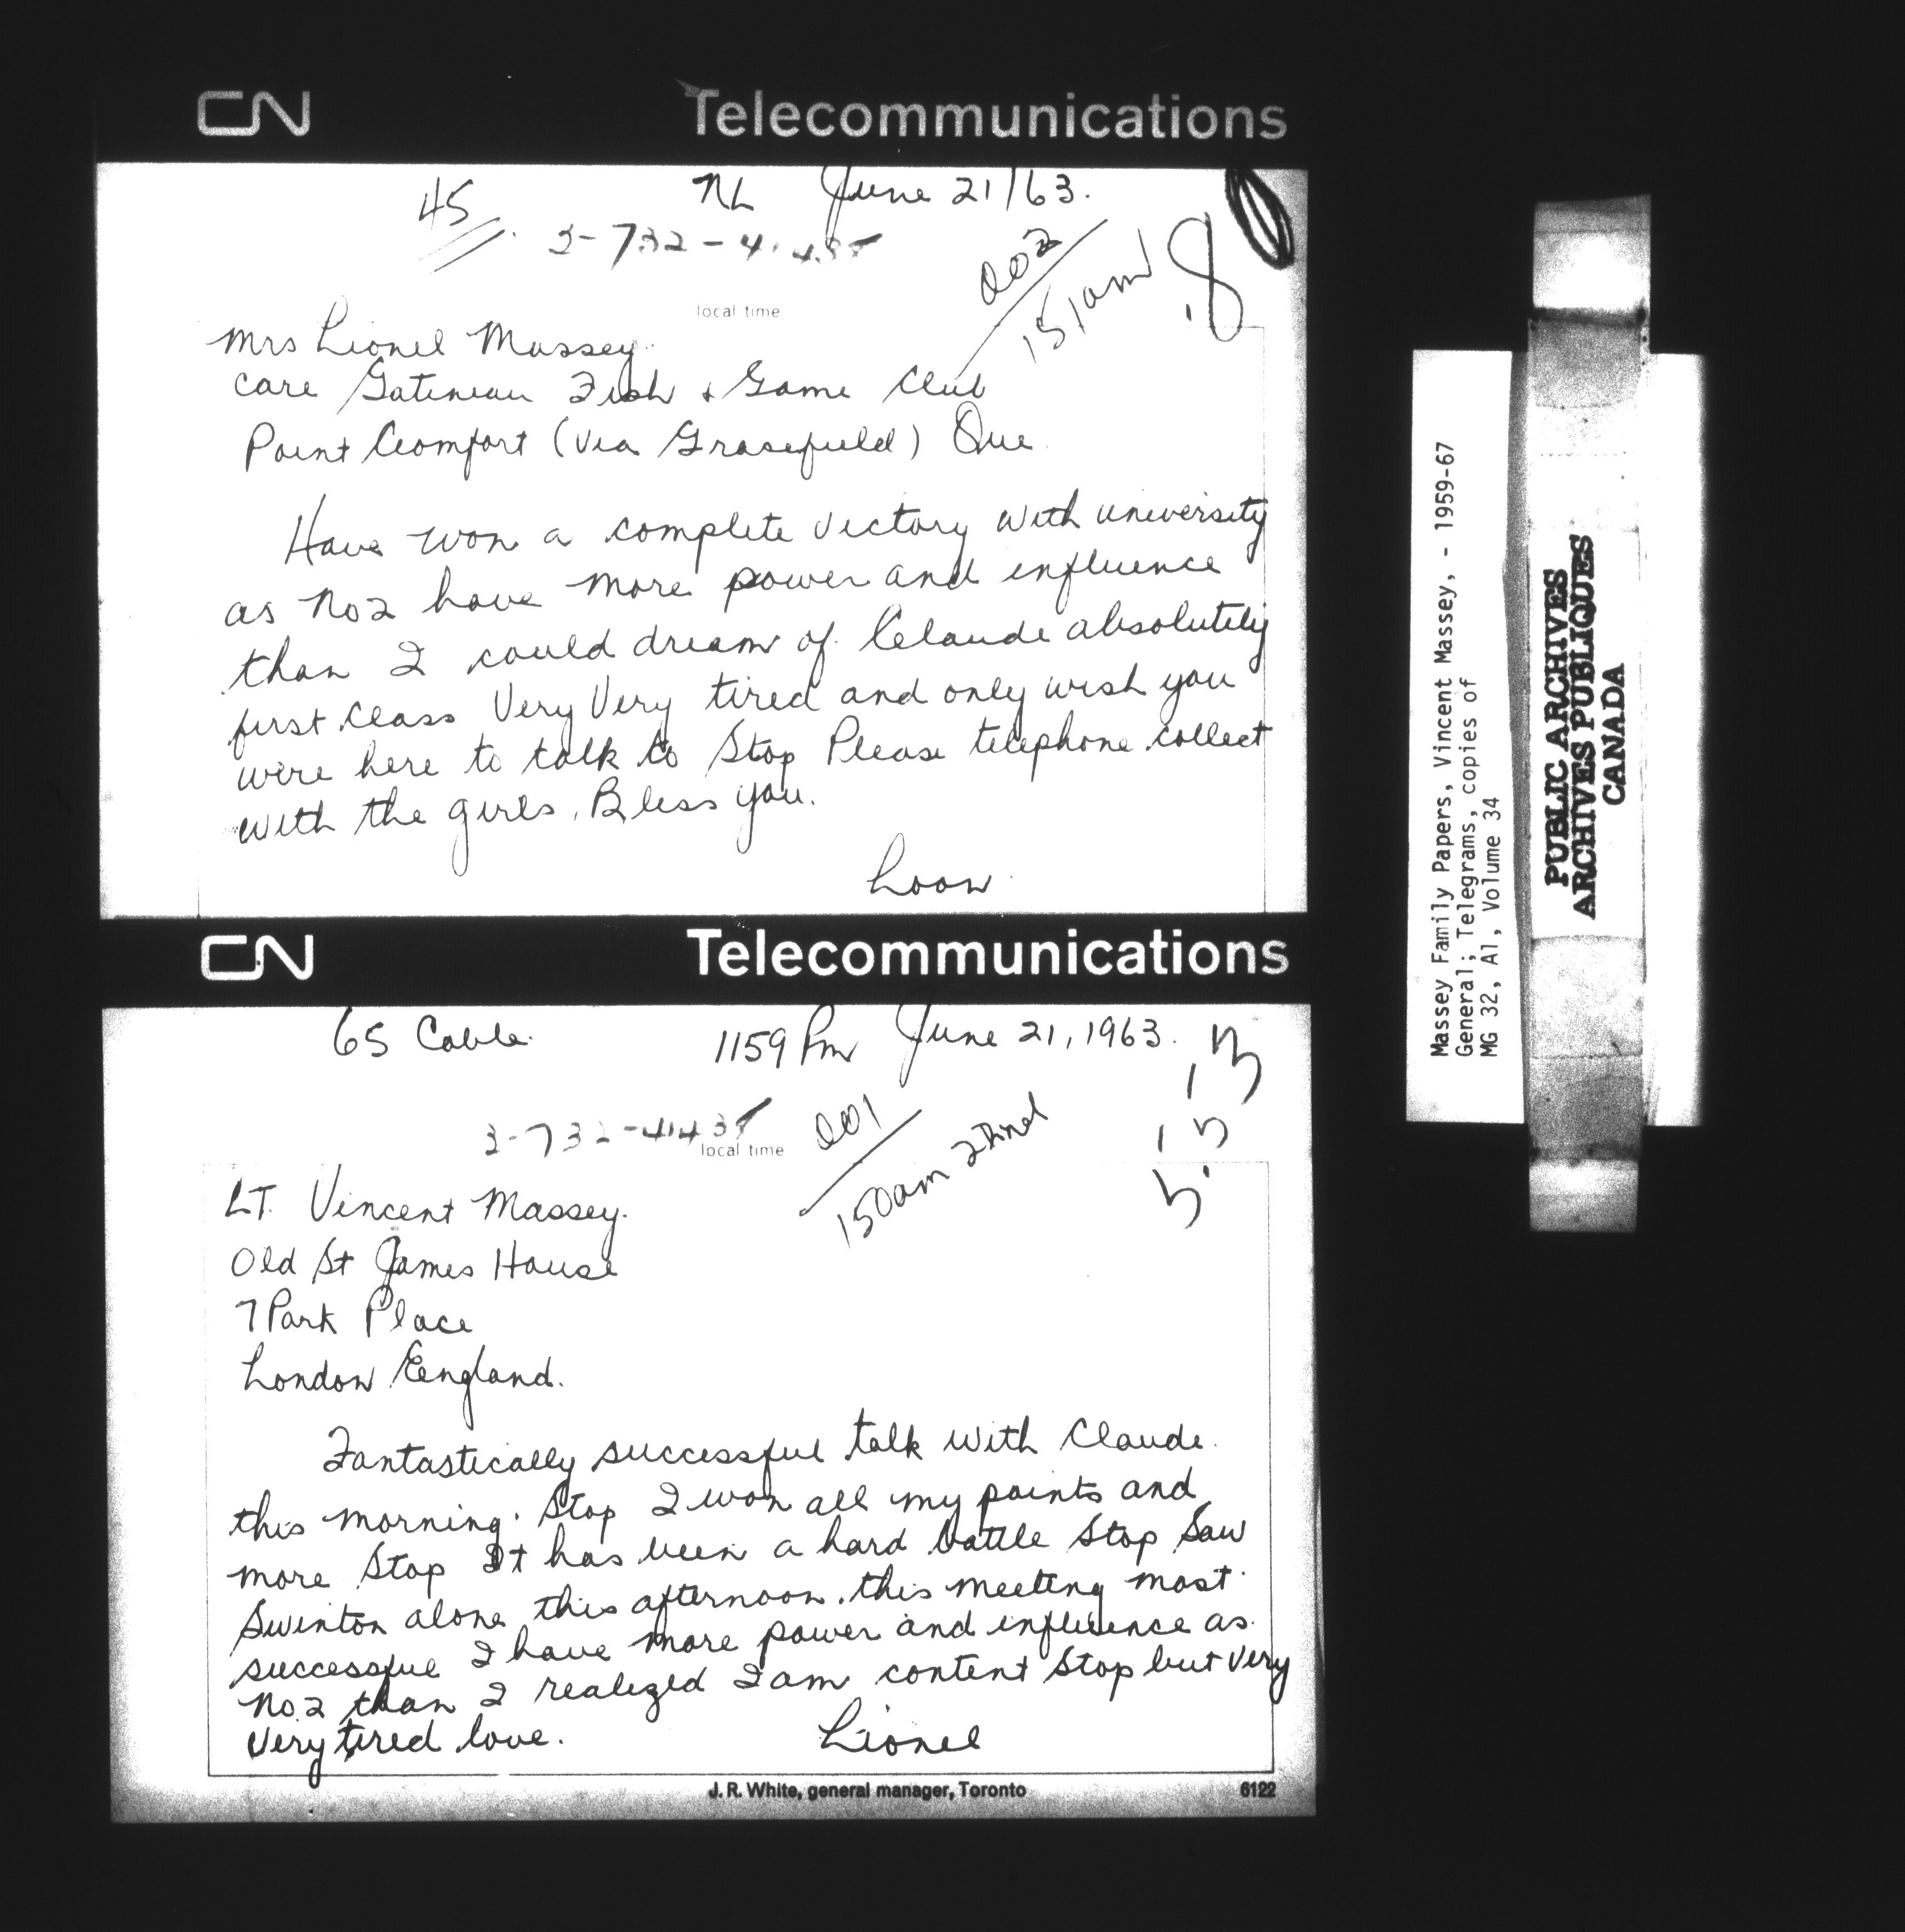 CN Telecommunications
45 NL June 21/63.
3-732-41437
002
151am
.8
local time
Mrs Lionel Massey
care Gatineau Fish & Game Club
Point Comfort (via Gracefield) Que
Have won a complete victory with university
as No2 have more power and influence
than I could dream of. Claude absolutely
first class Very Very tired and only wish you
were here to talk to Stop Please telephone collect
with the girls. Bless you.
Loon
CN Telecommunications
65 Cable. 1159 Pm June 21, 1963.
3-732-41437
local time
001
150am
LT. Vincent Massey.
Old St James House
7 Park Place
London England.
Fantastically successful talk with Claude.
this morning. Stop I won all my points and
more Stop It has been a hard battle Stop Saw
Swinton alone this afternoon. this meeting most
successful I have more power and influence as
No.2 than I realized I am content Stop but very
very tired love. Lionel
J. R. White, general manager, Toronto 6122
Massey Family Papers, Vincent Massey, - 1959-67
General; Telegrams, copies of
MG 32, A1, Volume 34
PUBLIC ARCHIVES
ARCHIVES PUBLIQUES
CANADA